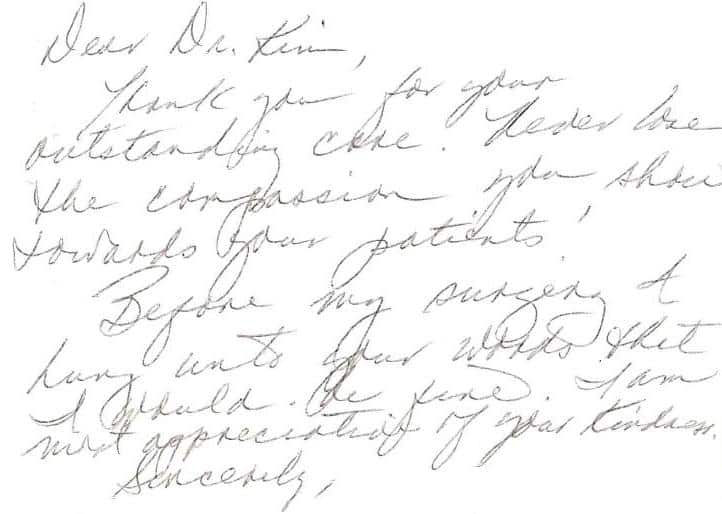 Dear Dr. Kim,
Thank you for your
outstanding care. Never lose
the compassion you show
towards your patients!
Before my surgery I
hung unto your words that
I would be fine. I am
most appreciative of your kindness.
Sincerely,